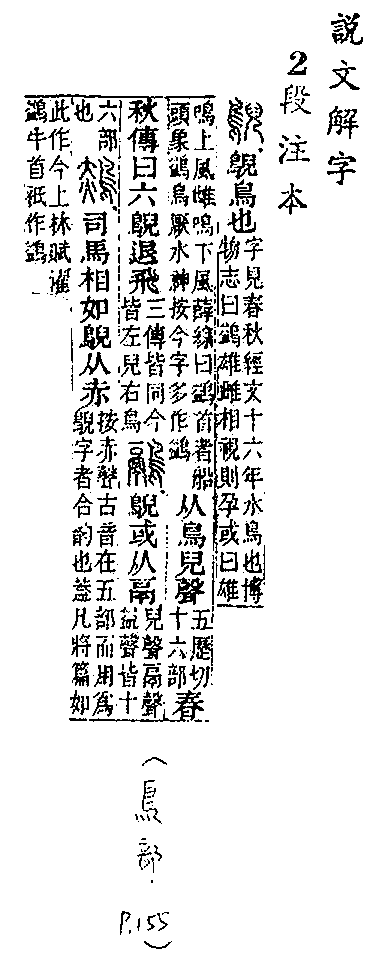 説文解字
2段注本
鶃鳥也
字見春秋經文十六年水鳥也博
物志曰鷁雄雌相視則孕或曰雄
鳴上風雌鳴下風薛綜曰鷁首者船
頭象鷁鳥厭水神按今字多作鷁
从鳥兒聲
五歷切
十六部
春
秋傳曰六鶃退飛
三傳皆同今
皆左兒右鳥
鶃或从鬲
兒聲鬲聲
益聲皆十
六部
也
司馬相如鶃从赤
按赤聲古音在五部而用爲
鶃字者合韵也蓋凡將篇如
此作今上林賦濯
鷁牛首祇作鷁
(鳥部.P.155)